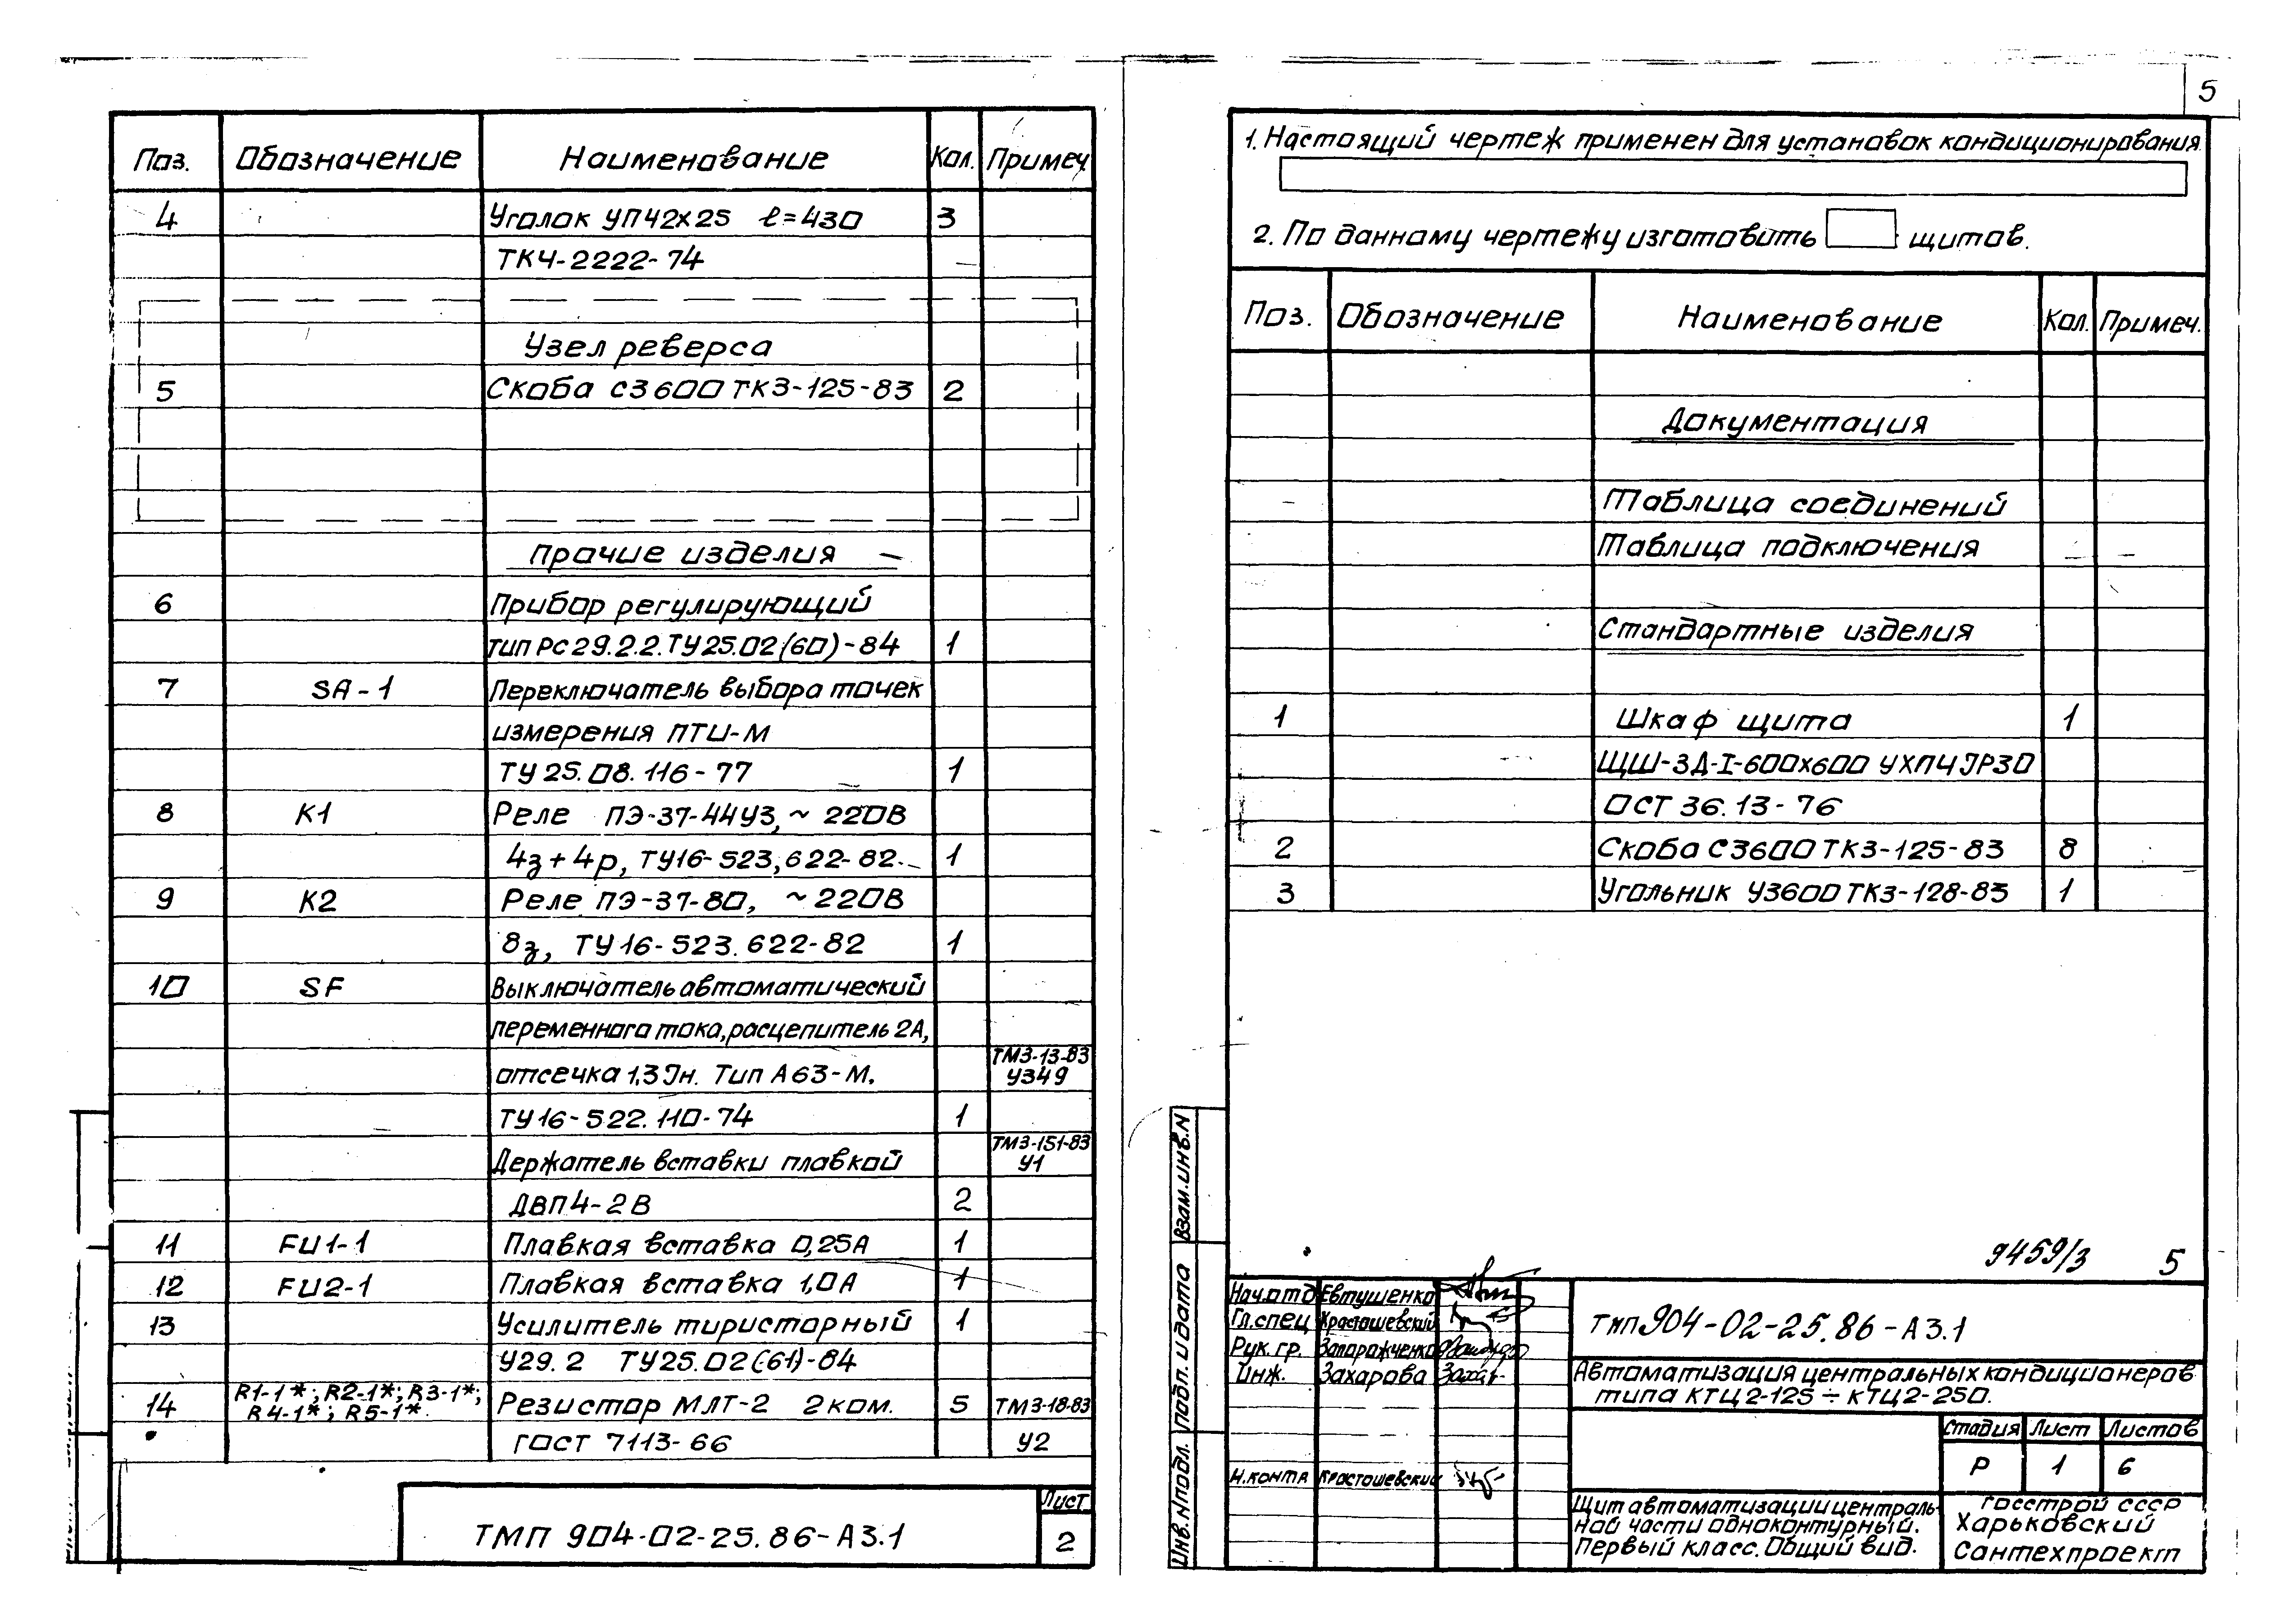 Поз. Обозначение Наименование Кол. Примеч.
4 Уголок УП42х25 ℓ=430 3
ТК4-2222-74
Узел реверса
5 Скоба С3600 ТК3-125-83 2
Прочие изделия
6 Прибор регулирующий
тип РС29.2.2. ТУ25.02(60)-84 1
7 SA-1 Переключатель выбора точек
измерения ПТИ-М
ТУ 25.08.116-77 1
8 К1 Реле ПЭ-37-44У3, ~ 220В
4з+4р, ТУ16-523,622-82. 1
9 К2 Реле ПЭ-37-80, ~220В
8з, ТУ16-523.622-82 1
10 SF Выключатель автоматический
переменного тока, расцепитель 2А,
отсечка 1,3 Jн. Тип А63-М. ТМ3-13-83 У349
ТУ16-522.110-74 1
Держатель вставки плавкой ТМ3-151-83 У1
ДВП4-2В 2
11 FU1-1 Плавкая вставка 0,25А 1
12 FU2-1 Плавкая вставка 1,0А 1
13 Усилитель тиристорный 1
У29.2 ТУ25.02(61)-84
14 R1-1*; R2-1*; R3-1*; R4-1*; R5-1*. Резистор МЛТ-2 2ком. 5 ТМ3-18-83
ГОСТ 7113-66 У2
ТМП 904-02-25.86-А3.1
Лист
2
5
1. Настоящий чертеж применен для установок кондиционирования
2. По данному чертежу изготовить щитов.
Поз. Обозначение Наименование Кол. Примеч.
Документация
Таблица соединений
Таблица подключения
Стандартные изделия
1 Шкаф щита 1
ЩШ-3Д-I-600х600 УХЛ4 JP30
ОСТ 36.13-76
2 Скоба С3600 ТК3-125-83 8
3 Угольник У3600 ТК3-128-83 1
9459/3 5
Взам.инв.N
Подп. и дата
Инв.N подл.
Нач.отд Евтушенко
Гл.спец Красташевский
Рук.гр. Запорожченко
Инж. Захарова
Н.контр Красташевский
ТМП 904-02-25.86-А3.1
Автоматизация центральных кондиционеров
типа КТЦ2-125÷КТЦ2-250.
Стадия Лист Листов
Р 1 6
Щит автоматизации централь-
ной части одноконтурный.
Первый класс. Общий вид.
Госстрой СССР
Харьковский
Сантехпроект